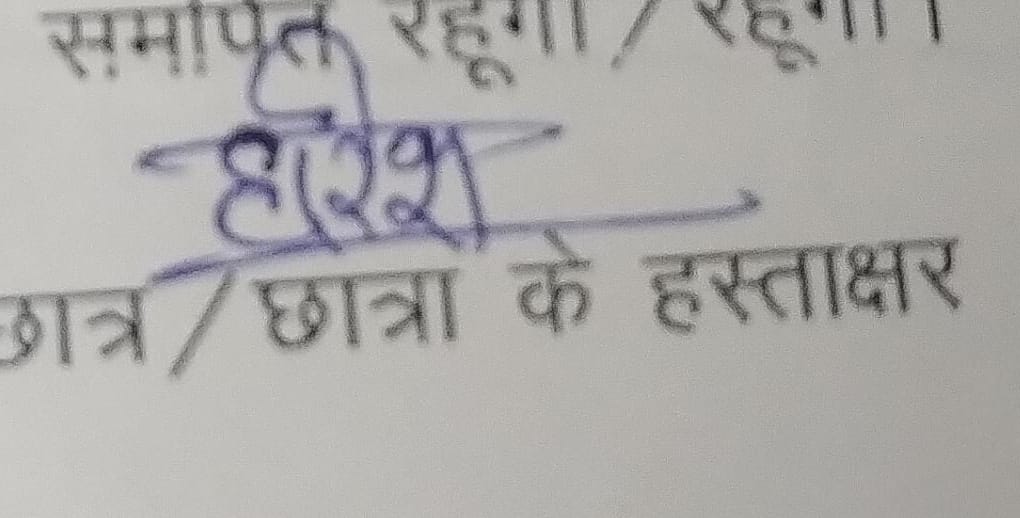 समर्पित रहूंगा / रहूंगी।
हरीश
छात्र / छात्रा के हस्ताक्षर